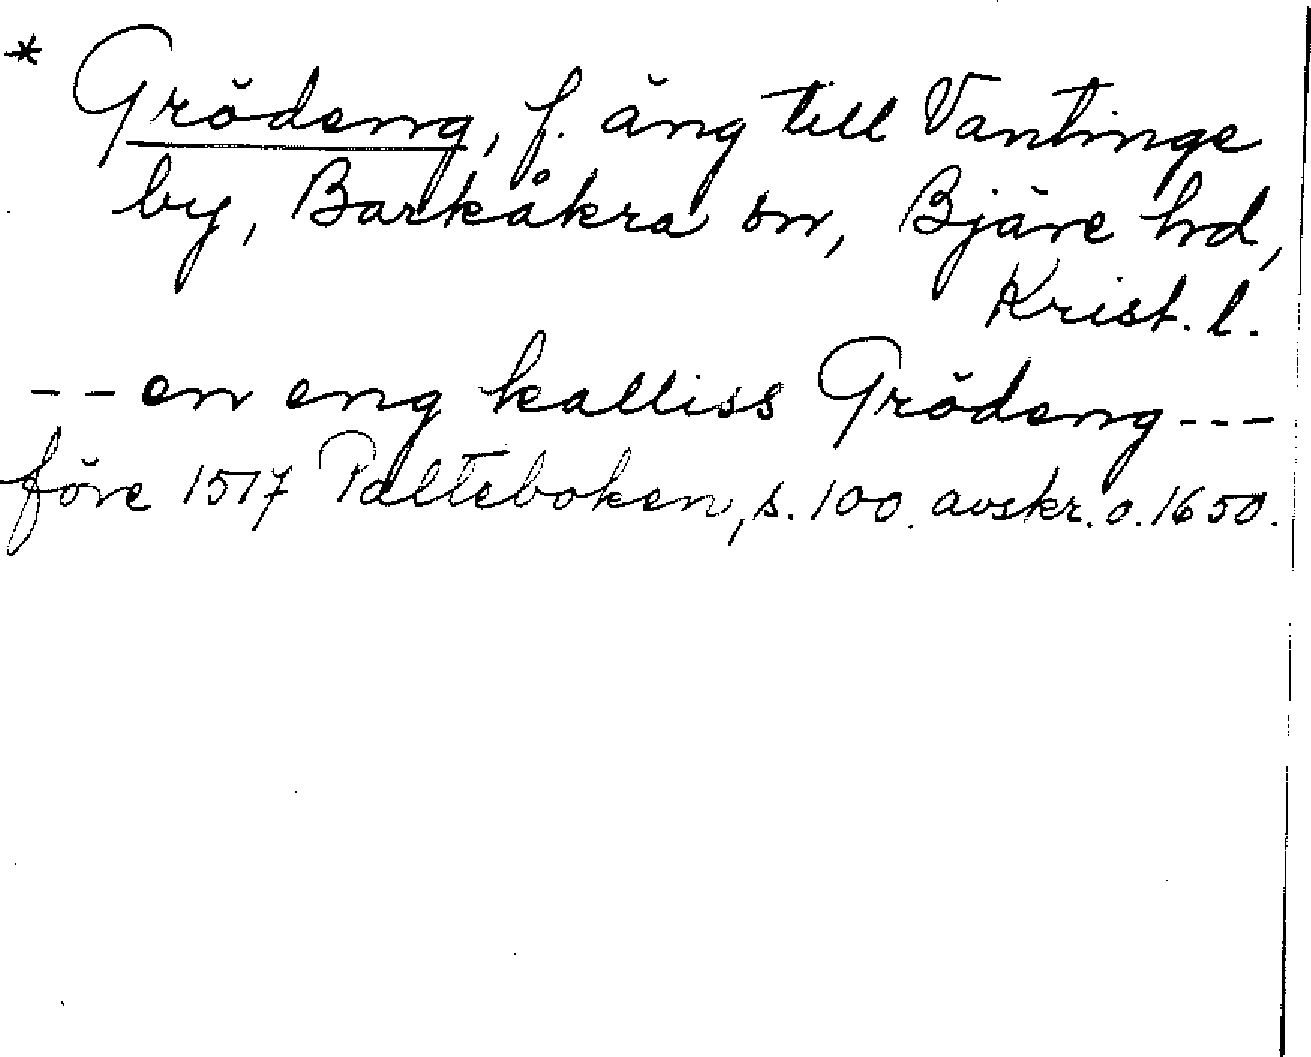 * Grödeng, f. äng till Vantinge
by, Barkåkra sn, Bjäre hd,
Krist. l.
-- en eng kalliss Grödeng ---
före 1517 Palteboken, s. 100. avskr. o. 1650.